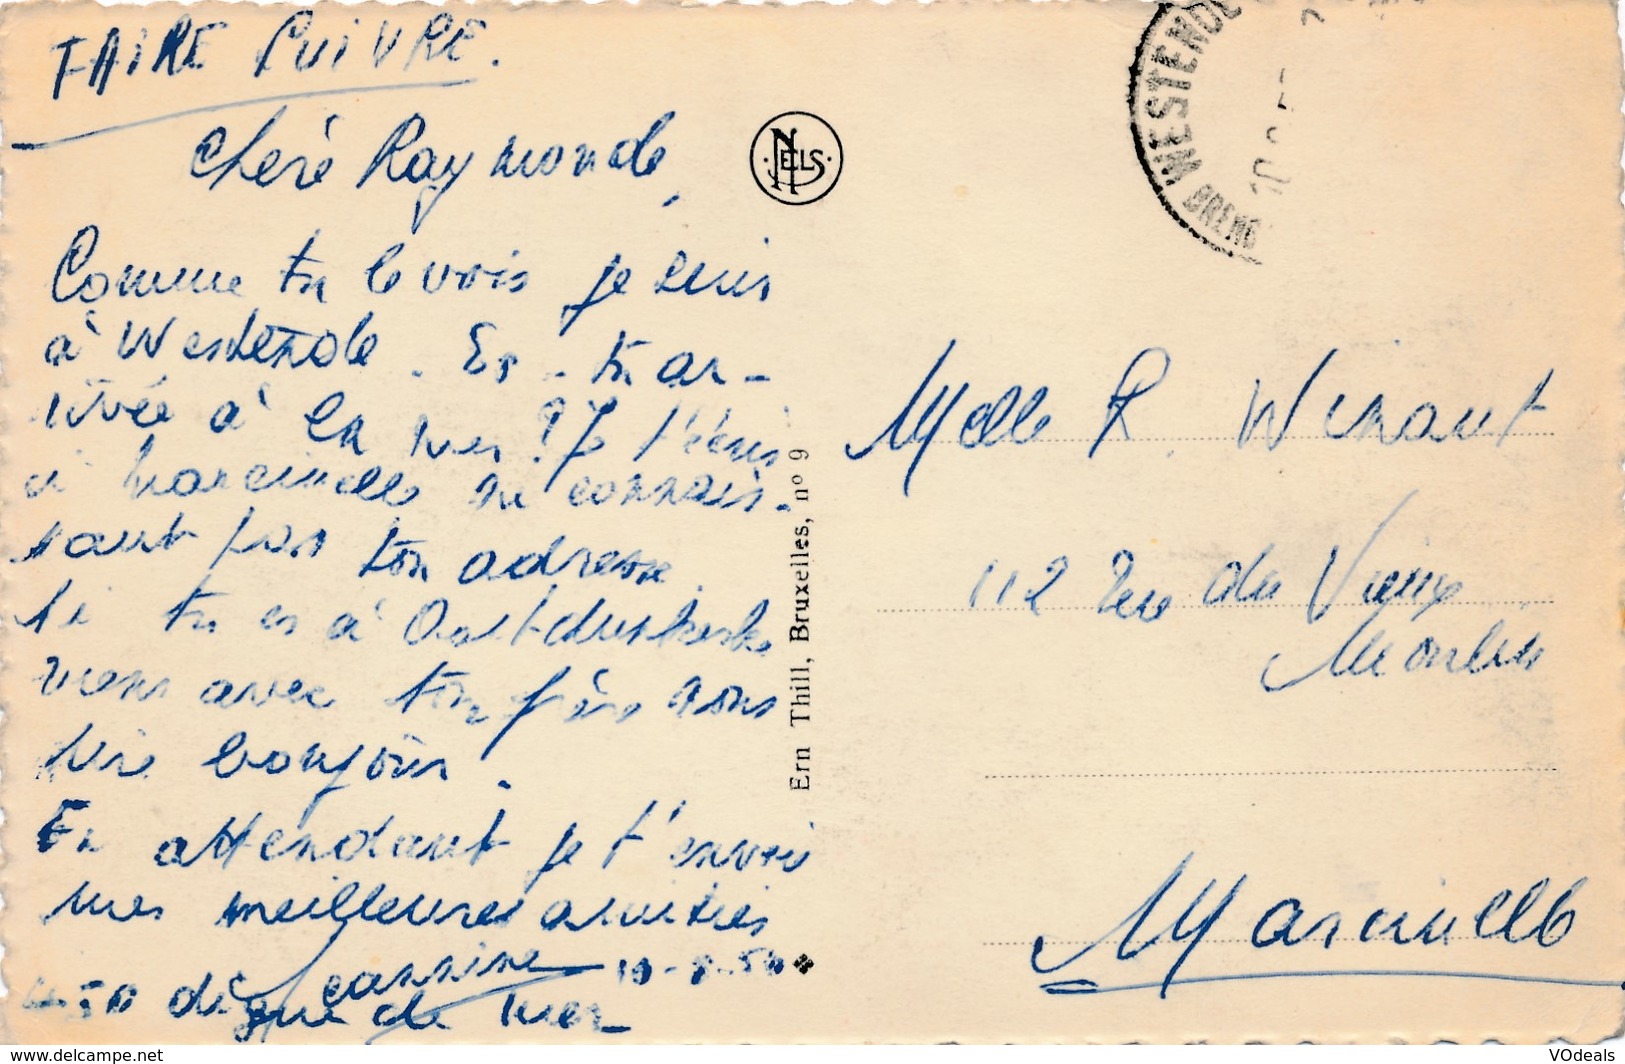 FAIRE SUIVRE.
Chère Raymonde,
Comme tu le vois je suis
à Westende. Es-tu ar-
rivée à la mer? Je t'écris
à Marcinelle ne connais-
sant pas ton adresse.
Si tu es à Oostdunkerke
viens avec ton frère nous
dire bonjour.
En attendant je t'envoie
mes meilleures amitiés
10-8-54
digue de mer
NELS
Ern Thill, Bruxelles, nº 9
WESTENDE
BREND
Melle R. Winant
112 Rue du Vieux
Moulin
Marcinelle
www.delcampe.net
VOdeals